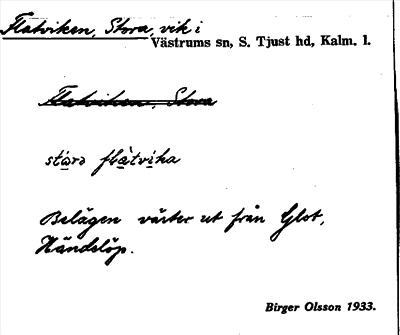 Flatviken, Stora, vik i
Västrums sn, S. Tjust hd, Kalm. l.
Flatviken, Stora
stårə flàtvika
Belägen väster ut från Glot,
Händelöp.
Birger Olsson 1933.